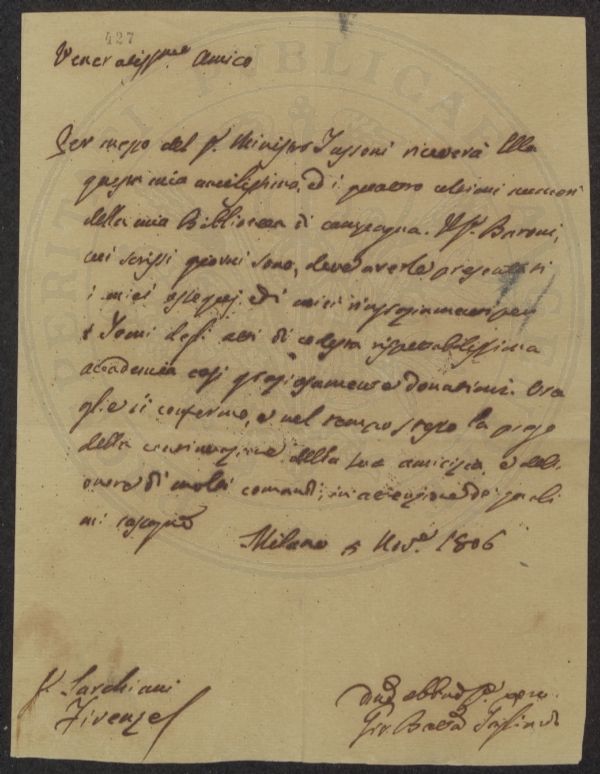 427
Veneratiss.mo Amico
Per mezzo del S.r Ministro Tassoni riceverà Ella
questa mia umilissima, ed i quattro ultimi numeri
della mia Biblioteca di campagna. Il S.r Baroni,
cui scrissi giorni sono, deve averle presentati
i miei ossequj, ed i miei ringraziamenti per
i Tomi degli atti di codesta rispettabilissima
accademia così graziosamente donatimi. Ora
glie li confermo, e nel tempo stesso la prego
della continuazione della sua amicizia, e dell'
onore di molti comandi, in attenzione de' quali
mi rassegno
Milano 5 Nov.e 1806
S. Sarchiani
Firenze
Gio. Batta